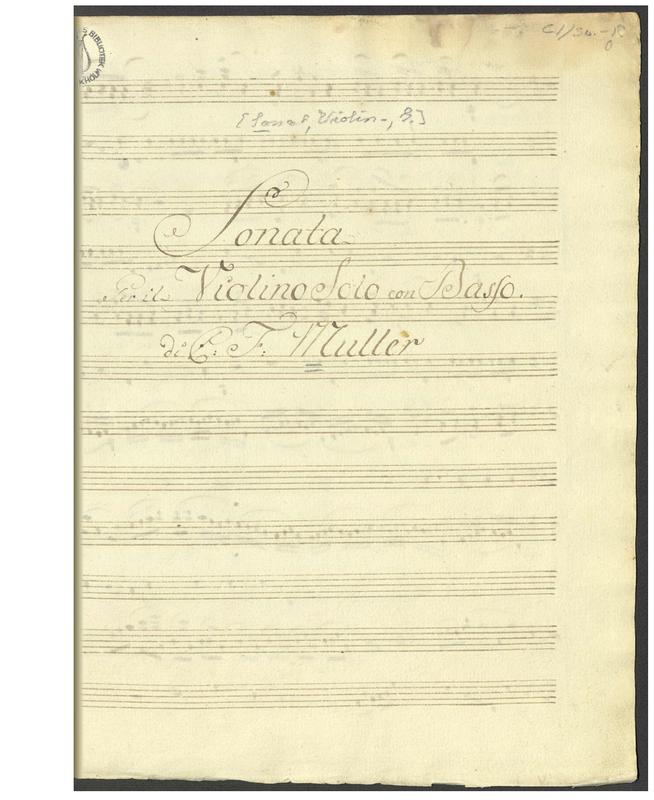 C1/Sv.-R
[Sonat, Violin-, G.]
Sonata
Per il Violino Solo con Basso.
di C: F: Muller